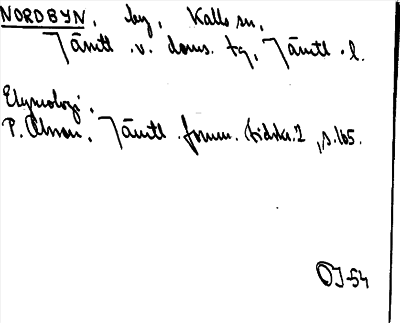 NORDBYN, by, Kalls sn,
Jämtl. v. doms. tg, Jämtl. l.
Etymologi.
P. Olsson, Jämtl. fornm. tidskr. 2, s. 165.
OJ-54